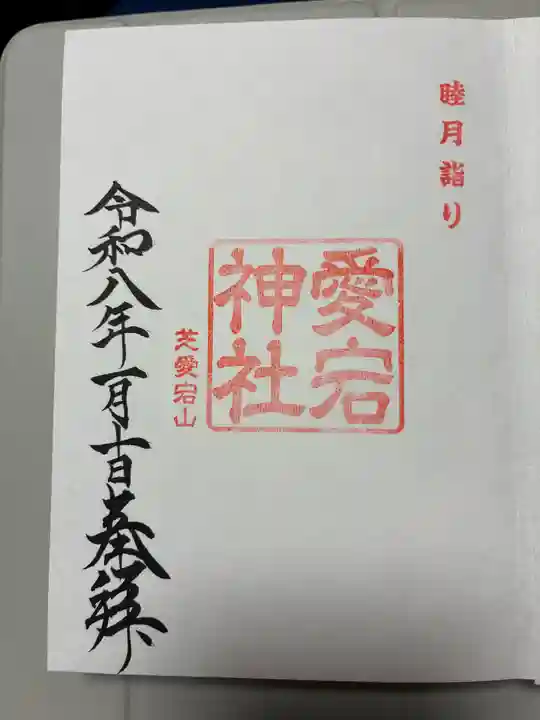 睦月詣り
愛宕
神社
芝愛宕山
令和八年一月十日奉拝